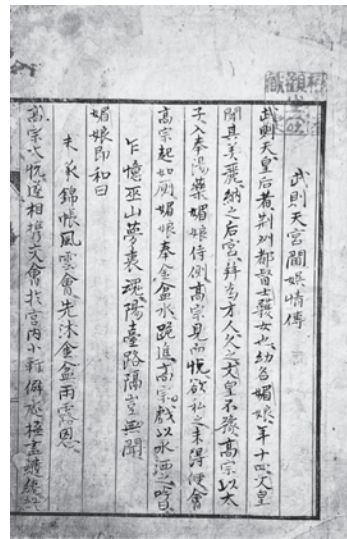 武則天宮闈娛情傳
武則天皇后者荆州都督士彠女也幼名媚娘年十四文皇
聞其美麗納之后宮拜為才人久之文皇不豫高宗以太
子入奉湯藥媚娘侍側高宗見而悅欲私之未得便會
高宗起如厠媚娘奉金盆水跪進高宗戲以水洒之曰
乍憶巫山夢裏魂陽臺路隔豈無聞
媚娘即和曰
未承錦帳風雲會先沐金盆雨露恩
高宗大悅遂相攜交會於宮內小軒僻處極盡繾綣